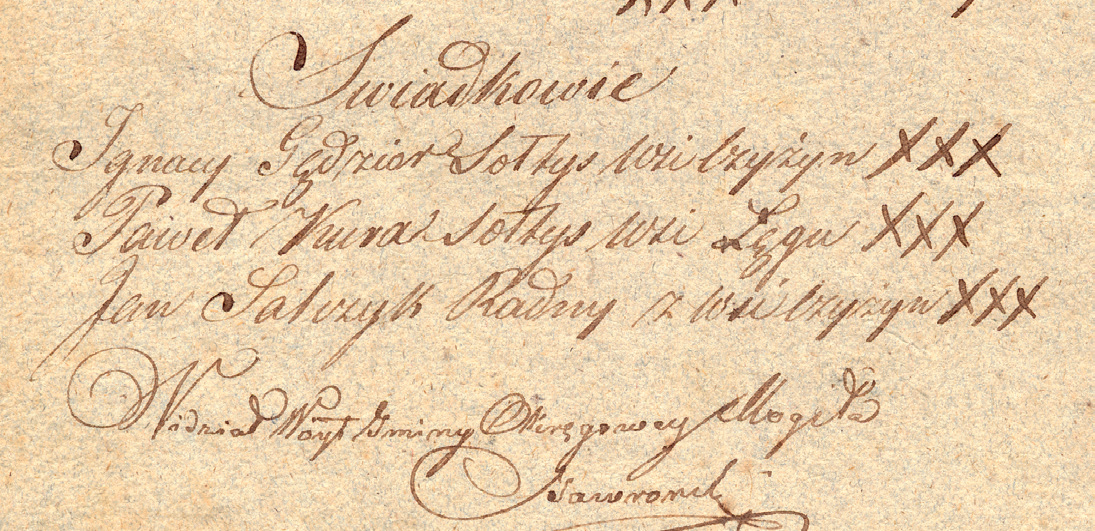 XXX
Swiadkowie
Ignacy Gędzior Sołtys wsi Czyżyn XXX
Paweł Kura Sołtys wsi Łęgu XXX
Jan Salwzyk Radny z wsi Czyżyn XXX
Widział Woyt Gminy Okręgowey Mogiła